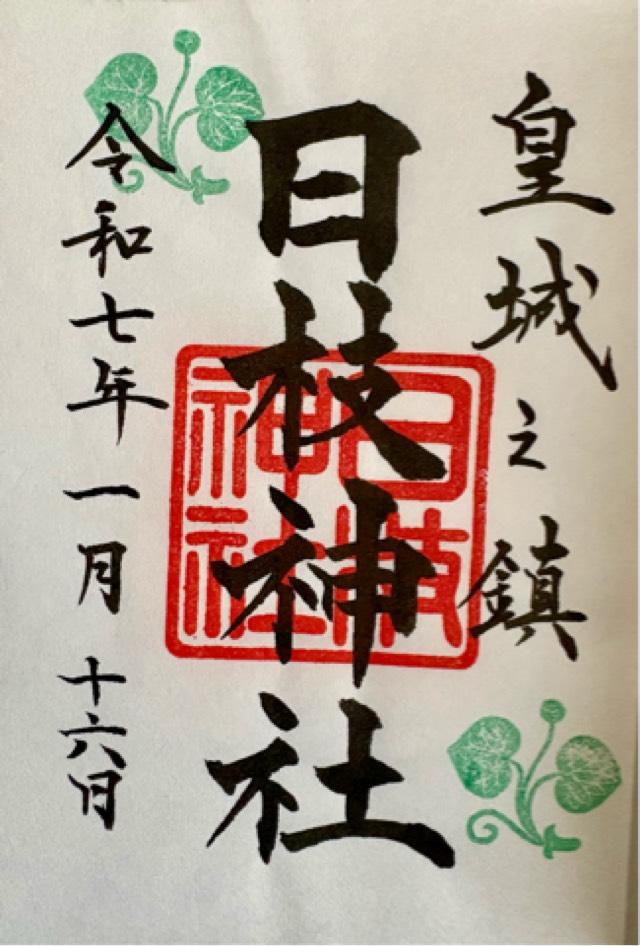 皇城之鎮
日枝神社
日枝神社
令和七年一月十六日